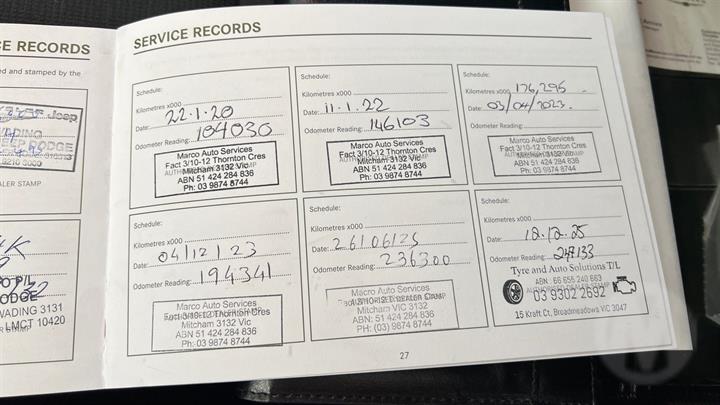 E RECORDS
ed and stamped by the
Jeep
DODGE
9210 3000
LER STAMP
P/L
VADING 3131
LMCT 10420
SERVICE RECORDS
Schedule:
Kilometres x000
Date: 22.1.20
Odometer Reading: 104030
Marco Auto Services
Fact 3/10-12 Thornton Cres
Mitcham 3132 Vic
ABN 51 424 284 836
Ph: 03 9874 8744
Schedule:
Kilometres x000
Date: 11.1.22
Odometer Reading: 146103
Marco Auto Services
Fact 3/10-12 Thornton Cres
Mitcham 3132 Vic
ABN 51 424 284 836
Ph: 03 9874 8744
Schedule:
Kilometres x000 176,295
Date: 03/04/2023
Odometer Reading:
Marco Auto Services
Fact 3/10-12 Thornton Cres
Mitcham 3132 Vic
ABN 51 424 284 836
Ph: 03 9874 8744
Schedule:
Kilometres x000
Date: 04/12/23
Odometer Reading: 194341
Marco Auto Services
Fact 3/10-12 Thornton Cres
Mitcham 3132 Vic
ABN 51 424 284 836
Ph: 03 9874 8744
Schedule:
Kilometres x000
Date: 26/06/25
Odometer Reading: 236300
Marco Auto Services
Mitcham VIC 3132
ABN: 51 424 284 836
PH: (03) 9874 8744
Schedule:
Kilometres x000
Date: 12.12.25
Odometer Reading:
Tyre and Auto Solutions T/L
ABN : 66 655 240 663
03 9302 2692
15 Kraft Ct, Broadmeadows VIC 3047
27